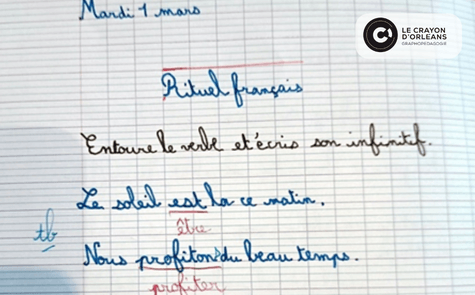 Mardi 1 mars
LE CRAYON
D'ORLEANS
GRAPHOPEDAGOGIE
Rituel français
Entoure le verbe et écris son infinitif.
Le soleil est la ce matin.
être
tb
Nous profitons du beau temps.
profiter